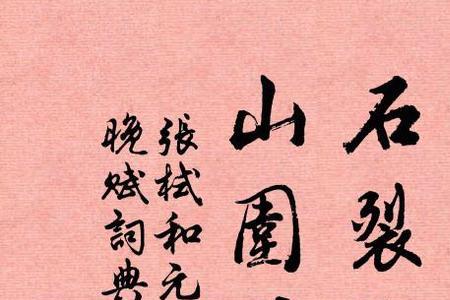 石裂
山圍
張栻和元
晚賦詞典